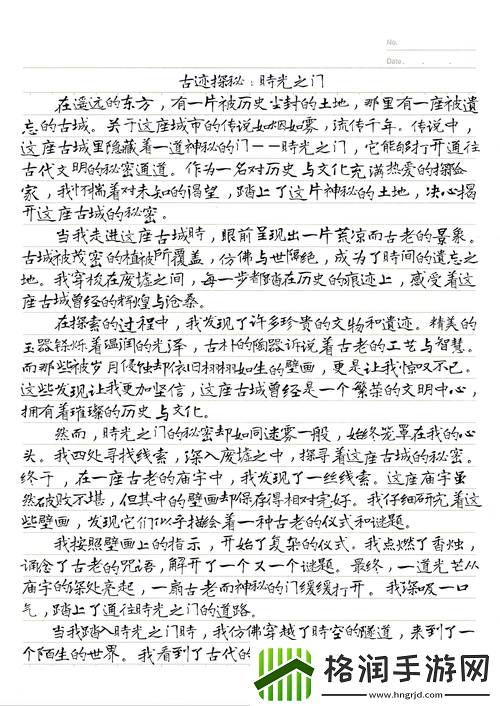 No.
Date. . .
古迹探秘：時光之门
在遥远的东方，有一片被历史尘封的土地，那里有一座被遗
忘的古城。关于这座城市的传说如烟如雾，流传千年。传说中，
这座古城里隐藏着一道神秘的门——時光之门，它能够打开通往
古代文明的秘密通道。作为一名对历史与文化充满热爱的探险
家，我怀揣着对未知的渴望，踏上了这片神秘的土地，决心揭
开这座古城的秘密。
当我走进这座古城時，眼前呈现出一片荒凉而古老的景象。
古城被茂密的植被所覆盖，仿佛与世隔绝，成为了時间的遗忘之
地。我穿梭在废墟之间，每一步都踏在历史的痕迹上，感受着这
座古城曾经的辉煌与沧桑。
在探索的过程中，我发现了许多珍贵的文物和遗迹。精美的
玉器铄烁着温润的光泽，古朴的陶器诉说着古老的工艺与智慧。
而那些被岁月侵蚀却依旧栩栩如生的壁画，更是让我惊叹不已。
这些发现让我更加坚信，这座古城曾经是一个繁荣的文明中心，
拥有着璀璨的历史与文化。
然而，時光之门的秘密却如同迷雾一般，始终笼罩在我的心
头。我四处寻找线索，深入废墟之中，探寻着这座古城的秘密。
终于，在一座古老的庙宇中，我发现了一丝线索。这座庙宇虽
然破败不堪，但其中的壁画却保存得相对完好。我仔细研究着这
些壁画，发现它们似乎描绘着一种古老的仪式和谜题。
我按照壁画上的指示，开始了复杂的仪式。我点燃了香烛，
诵念了古老的咒语，解开了一个又一个谜题。最终，一道光芒从
庙宇的深处亮起，一扇古老而神秘的门缓缓打开。我深吸一口
气，踏上了通往時光之门的道路。
当我踏入時光之门時，我仿佛穿越了時空的隧道，来到了一
个陌生的世界。我看到了古代的
格润手游网
www.hngrjd.com